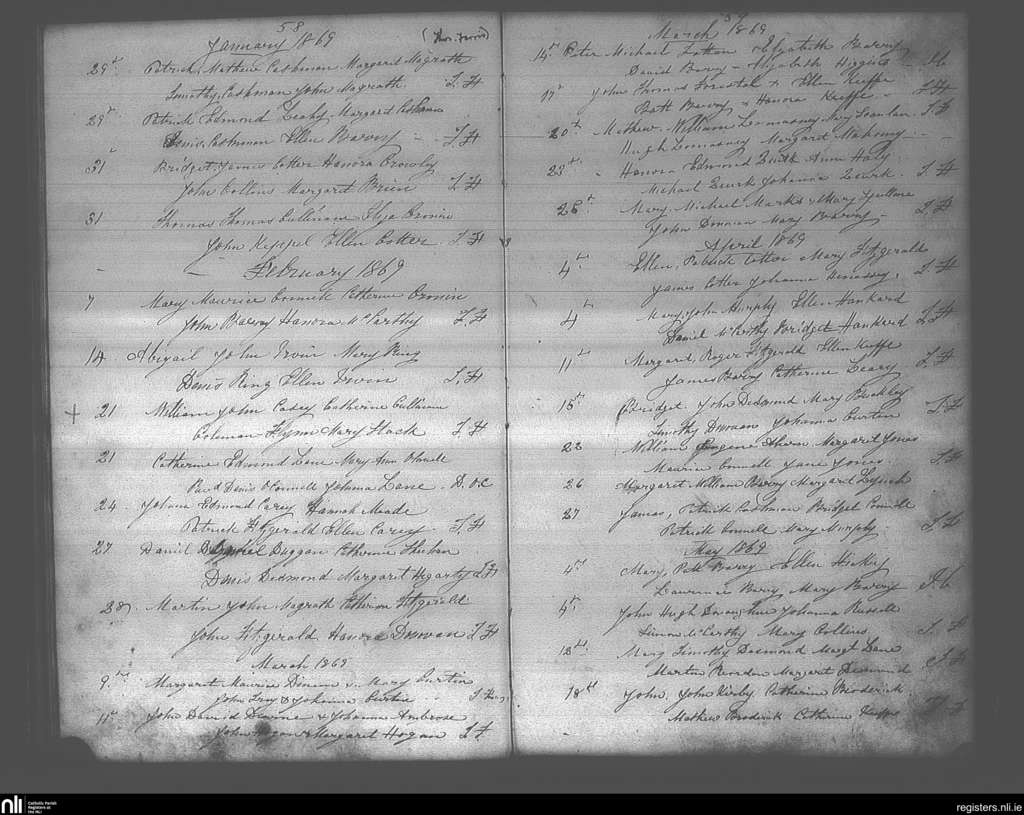 58
January 1869
29th Patrick, Mathew Cashman Margaret Magrath
Timothy Cashman John Magrath. T. Ft
29th Patrick Edmond Leahy Margaret Cashman
Denis Cashman Ellen Barry T. Ft
31 Bridget, James Cotter Honora Crowly
John Collins Margaret Brien T. Ft
31 Thomas Thomas Cullinane Cronin
John Keppel Ellen Cotter. T. Ft
February 1869
7 Mary Maurice Connick Catherine Cronin
John Barry Hanora McCarthy T. Ft
14 Abigail John Irvin Mary Ring
Denis Ring Ellen Irvin T. Ft
21 William John Casey Catherine Cullinan
Coleman Flynn Mary Flack T. Ft
21 Catherine Edmond Lane Mary Ann
Denis O'Connell Johanna Lane. D. O'C
24 Johana Edmond Carey Hannah Meade
Patrick Fitzgerald Ellen Carey T. Ft
27 Daniel Daniel Duggan Catherine
Denis Desmond Margaret Hegarty T. Ft
28 Martin John Magrath Catherine Fitzgerald
John Fitzgerald Hanora Donovan T. Ft
March 1869
9th Margaret Maurice Dineen & Mary Curtin
John & Johanna Curtin
11th John David & Johanna Ambrose
John Hogan & Margaret Hogan T. F.
March 1869
14th Peter Michael Cotton & Elizabeth Barry
David Barry Elizabeth Higgins
17th John Thomas Forestal & Ellen Keeffe
Batt Barry & Hanora Keeffe T. Ft
20th Mathew William Lomasney Mary Scanlan T. Ft
Hugh Lomasney Margaret Mahony
23th Hanora Edmond Quirk Anne Haly
Michael Quirk Johanna Quirk. T. Ft
28th Mary, Michael Marks & Mary Spillane
John Donovan Mary Barry T. Ft
April 1869
4th Ellen, Patrick Cotter Mary Fitzgerald
James Cotter Johanna T. Ft
4 Mary, John Murphy Ellen Hankard
Daniel McCarthy Bridget Hankard T. Ft
11th Margaret, Roger Fitzgerald Ellen Keeffe
James Barry Catherine Leary T. Ft
15th Bridget, John Desmond Mary Buckley
Timothy Donovan Johanna Curtin T. Ft
22 William Eugene Ahern Margaret Jones
Maurice Connell Jane Jones. T. Ft
26 Margaret William Barry Margaret Lynch
27 James, Patrick Cashman Bridget Connell
Patrick Connell Mary Murphy T. Ft
May 1869
4th Mary, Barry Ellen Hickey
Laurence Barry Mary Barry
4th John Hugh Donoughue Johanna Russell
Simon McCarthy Mary Collins T. Ft
18th Mary Timothy Desmond Margt Lane
Martin Reardon Margaret Desmond T. Ft
18th John, John Kirby Catherine Broderick
Mathew Broderick Catherine
nli
Catholic Parish
Registers at
the NLI
registers.nli.ie